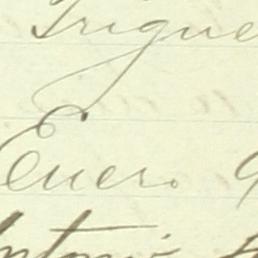 Trigue
Enero 9
Antonio